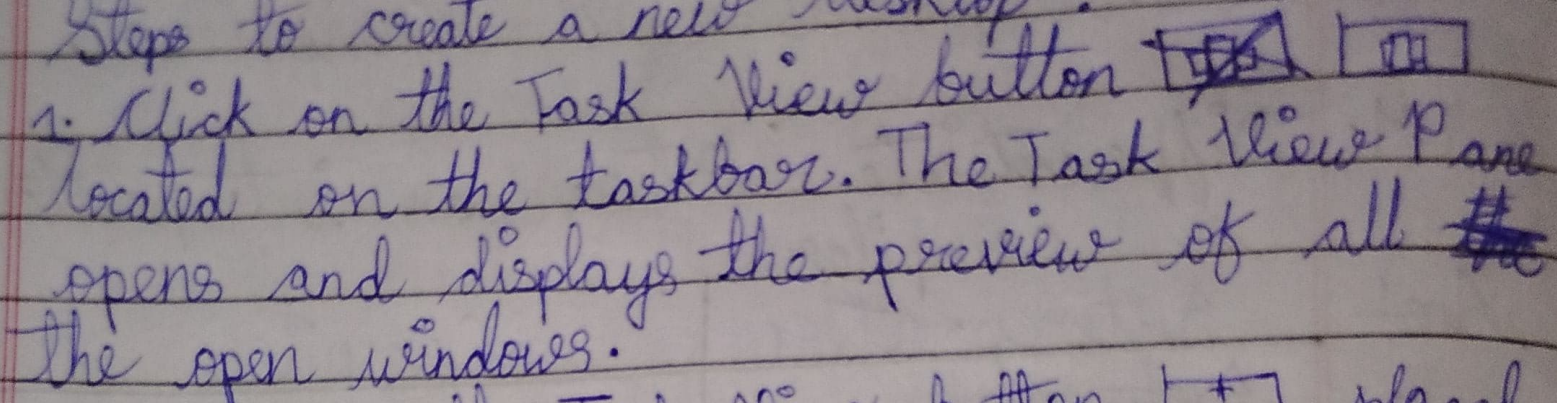 Steps to create a new desktop.
1. Click on the Task View button
located on the taskbar. The Task View Pane
opens and displays the preview of all
the open windows.